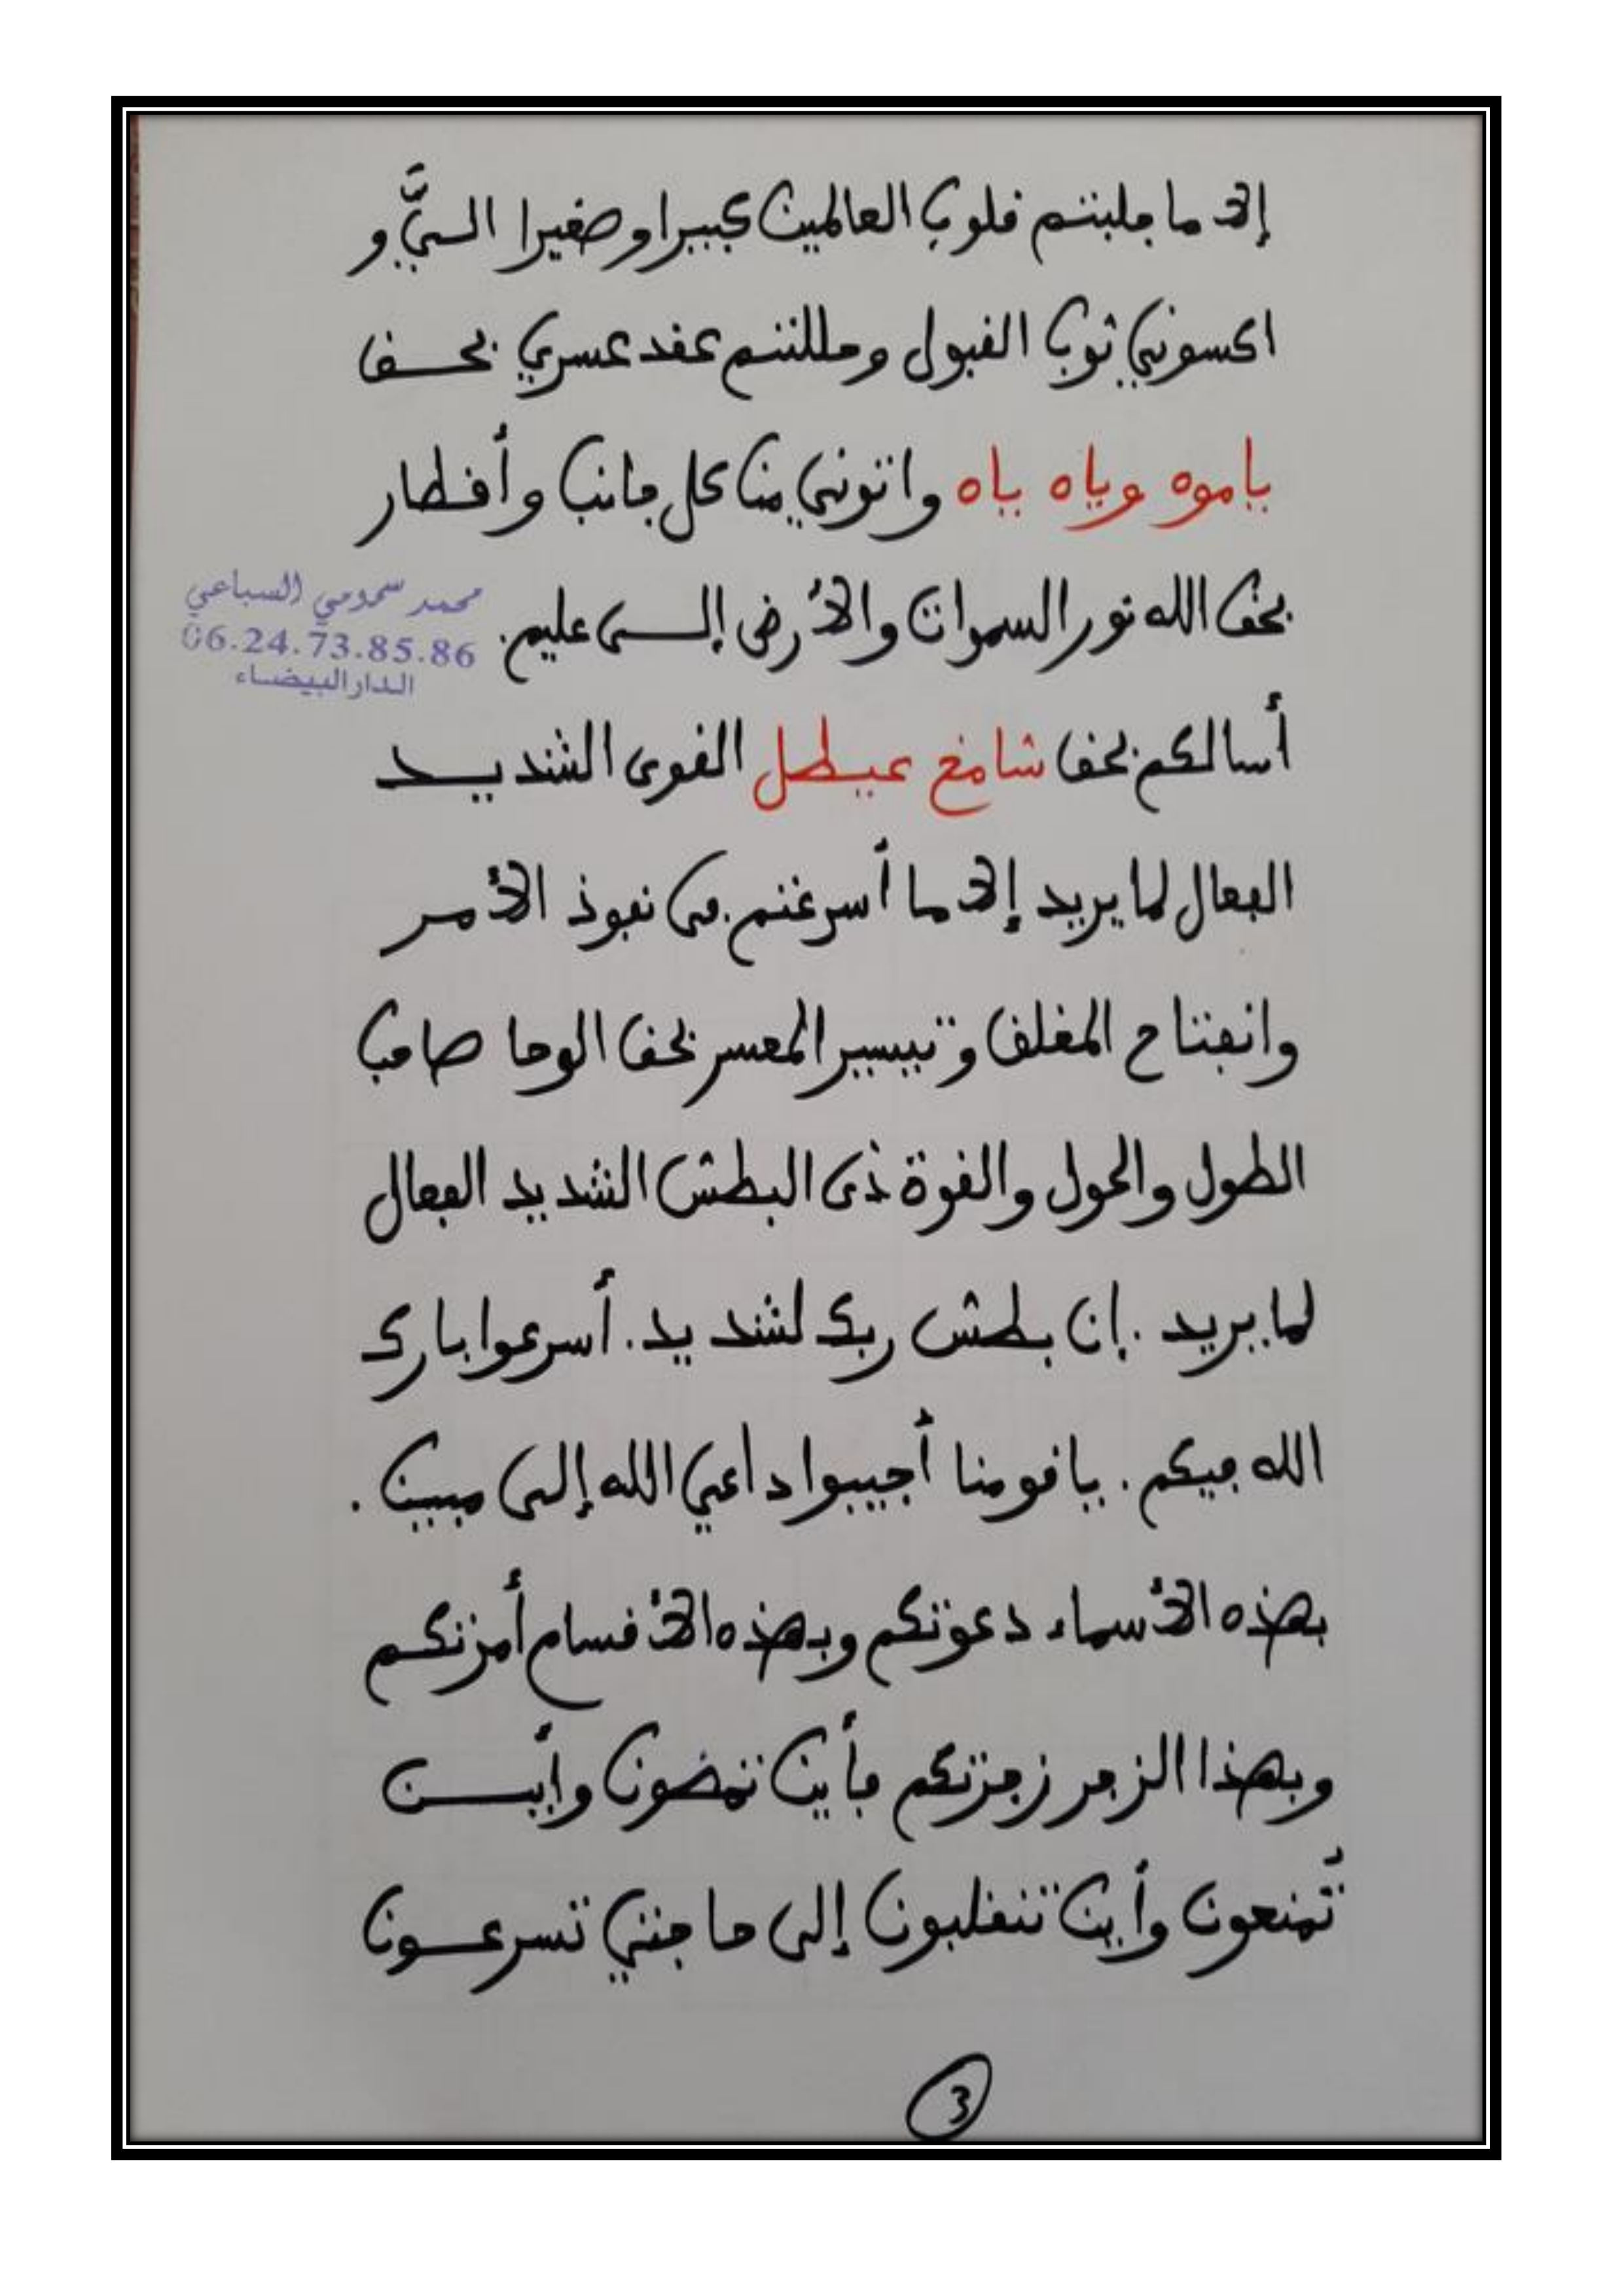 إلا ما جلبتم قلوب العالمين كبيرا وصغيرا إليَّ و
اكسوني ثوب القبول وحللتم عقد عسري بحق
ياموه وياه ياه واتوني من كل جانب وأقطار
بحق الله نور السموات والأرض إلى عليم.
محمد سمومي السباعي
06.24.73.85.86
الدار البيضاء
أسالكم بحق شامخ عيطل القوى الشديد
الفعال لما يريد إلا ما أسرعتم في نفوذ الأمر
وانفتاح المغلق وتيسير المعسر بحق الوحا صاحب
الطول والحول والقوة ذى البطش الشديد الفعال
لما يريد. إن بطش ربك لشديد. أسرعوا بارك
الله فيكم. ياقومنا أجيبوا داعي الله إلى مبين.
بهذه الأسماء دعوتكم وبهذه الأقسام أمرتكم
وبهذا الزجر زجرتكم فأين تمضون وأين
تُمنعون وأين تنقلبون إلى حاجتي تسرعون
3